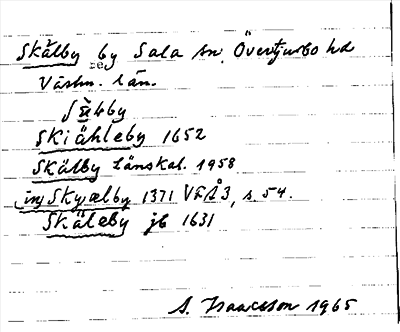 Skälby by Sala sn. Övertjurbo hd
Västm. län.
Skiähleby 1652
Skälby Länskal. 1958
inj Skyælby 1371 VFÅ3, s. 54.
Skäleby jb 1631
S. Isaacsson 1965